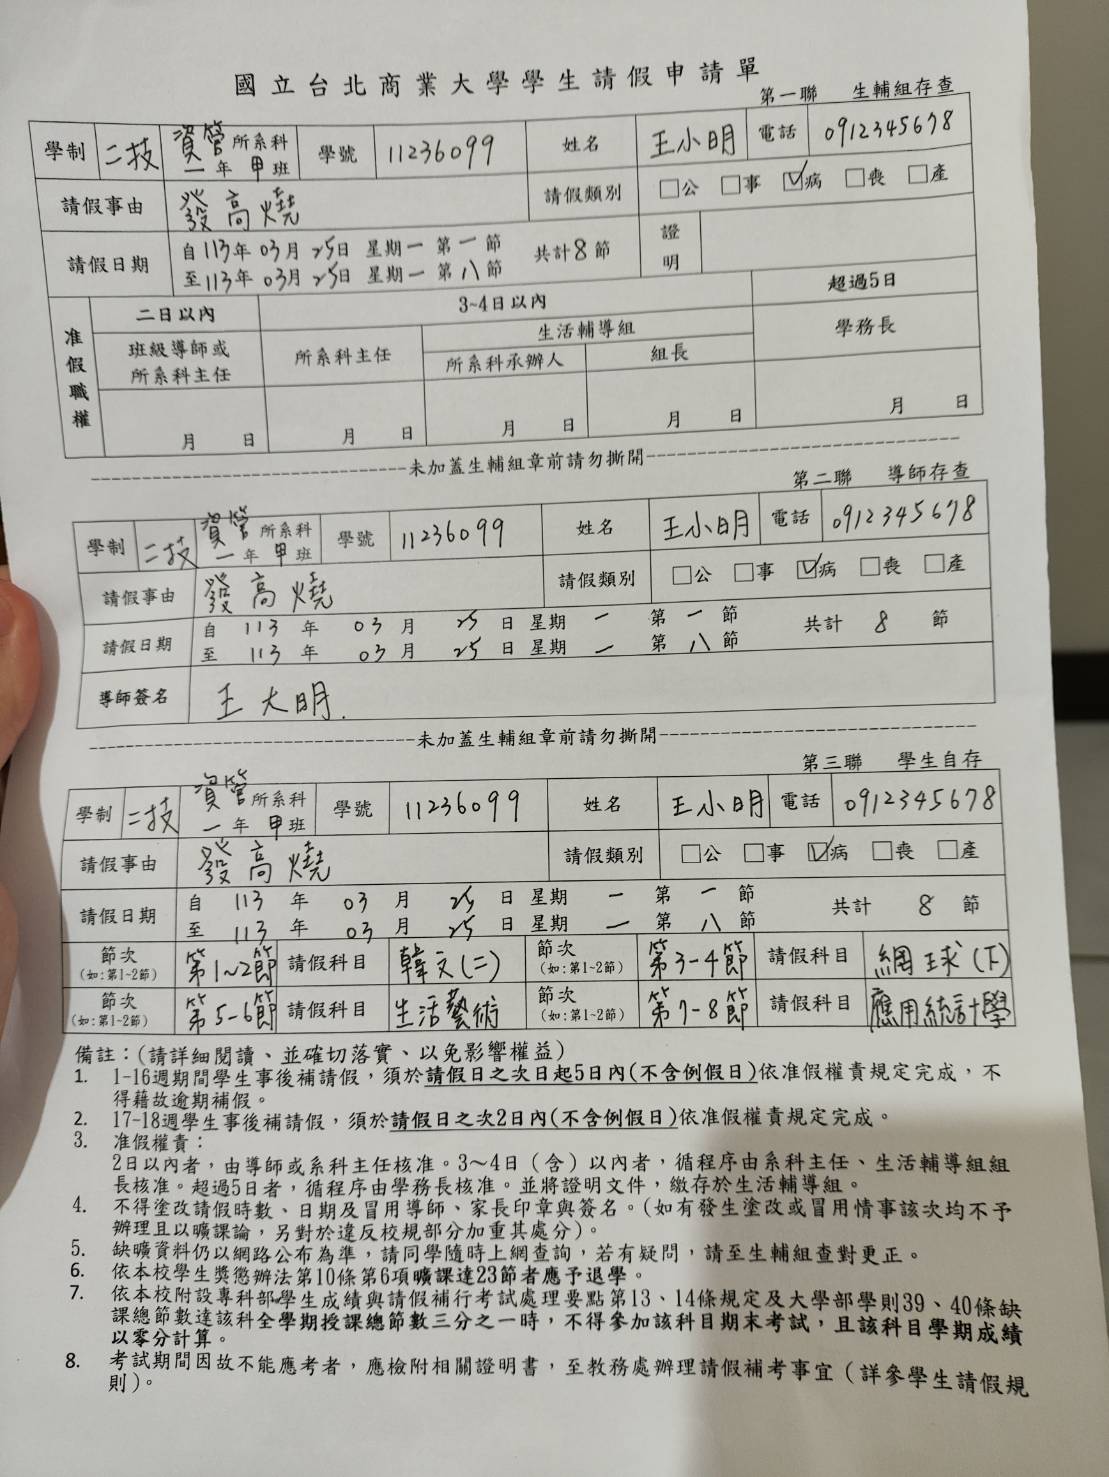 國立台北商業大學學生請假申請單
第一聯 生輔組存查
學制 二技 資管所系科 一年甲班 學號 11236099 姓名 王小明 電話 0912345678
請假事由 發高燒 請假類別 □公 □事 ☑病 □喪 □產
請假日期 自113年03月25日 星期一 第一節 共計8節 證明
至113年03月25日 星期一 第八節
准假職權 二日以內 3~4日以內 超過5日
班級導師或所系科主任 所系科主任 生活輔導組 學務長
所系科承辦人 組長
月 日 月 日 月 日 月 日 月 日
未加蓋生輔組章前請勿撕開
第二聯 導師存查
學制 二技 資管所系科 一年甲班 學號 11236099 姓名 王小明 電話 0912345678
請假事由 發高燒 請假類別 □公 □事 ☑病 □喪 □產
請假日期 自 113 年 03 月 25 日 星期 一 第 一 節 共計 8 節
至 113 年 03 月 25 日 星期 一 第 八 節
導師簽名 王大明.
未加蓋生輔組章前請勿撕開
第三聯 學生自存
學制 二技 資管所系科 一年甲班 學號 11236099 姓名 王小明 電話 0912345678
請假事由 發高燒 請假類別 □公 □事 ☑病 □喪 □產
請假日期 自 113 年 03 月 25 日 星期 一 第 一 節 共計 8 節
至 113 年 03 月 25 日 星期 一 第 八 節
節次(如:第1~2節) 第1~2節 請假科目 韓文(二) 節次(如:第1~2節) 第3-4節 請假科目 網球(下)
節次(如:第1~2節) 第5-6節 請假科目 生活藝術 節次(如:第1~2節) 第7-8節 請假科目 應用統計學
備註：(請詳細閱讀、並確切落實、以免影響權益)
1. 1-16週期間學生事後補請假，須於請假日之次日起5日內(不含例假日)依准假權責規定完成，不
得藉故逾期補假。
2. 17-18週學生事後補請假，須於請假日之次2日內(不含例假日)依准假權責規定完成。
3. 准假權責：
2日以內者，由導師或系科主任核准。3～4日（含）以內者，循程序由系科主任、生活輔導組組
長核准。超過5日者，循程序由學務長核准。並將證明文件，繳存於生活輔導組。
4. 不得塗改請假時數、日期及冒用導師、家長印章與簽名。(如有發生塗改或冒用情事該次均不予
辦理且以曠課論，另對於違反校規部分加重其處分)。
5. 缺曠資料仍以網路公布為準，請同學隨時上網查詢，若有疑問，請至生輔組查對更正。
6. 依本校學生獎懲辦法第10條第6項曠課達23節者應予退學。
7. 依本校附設專科部學生成績與請假補行考試處理要點第13、14條規定及大學部學則39、40條缺
課總節數達該科全學期授課總節數三分之一時，不得參加該科目期末考試，且該科目學期成績
以零分計算。
8. 考試期間因故不能應考者，應檢附相關證明書，至教務處辦理請假補考事宜（詳參學生請假規
則）。